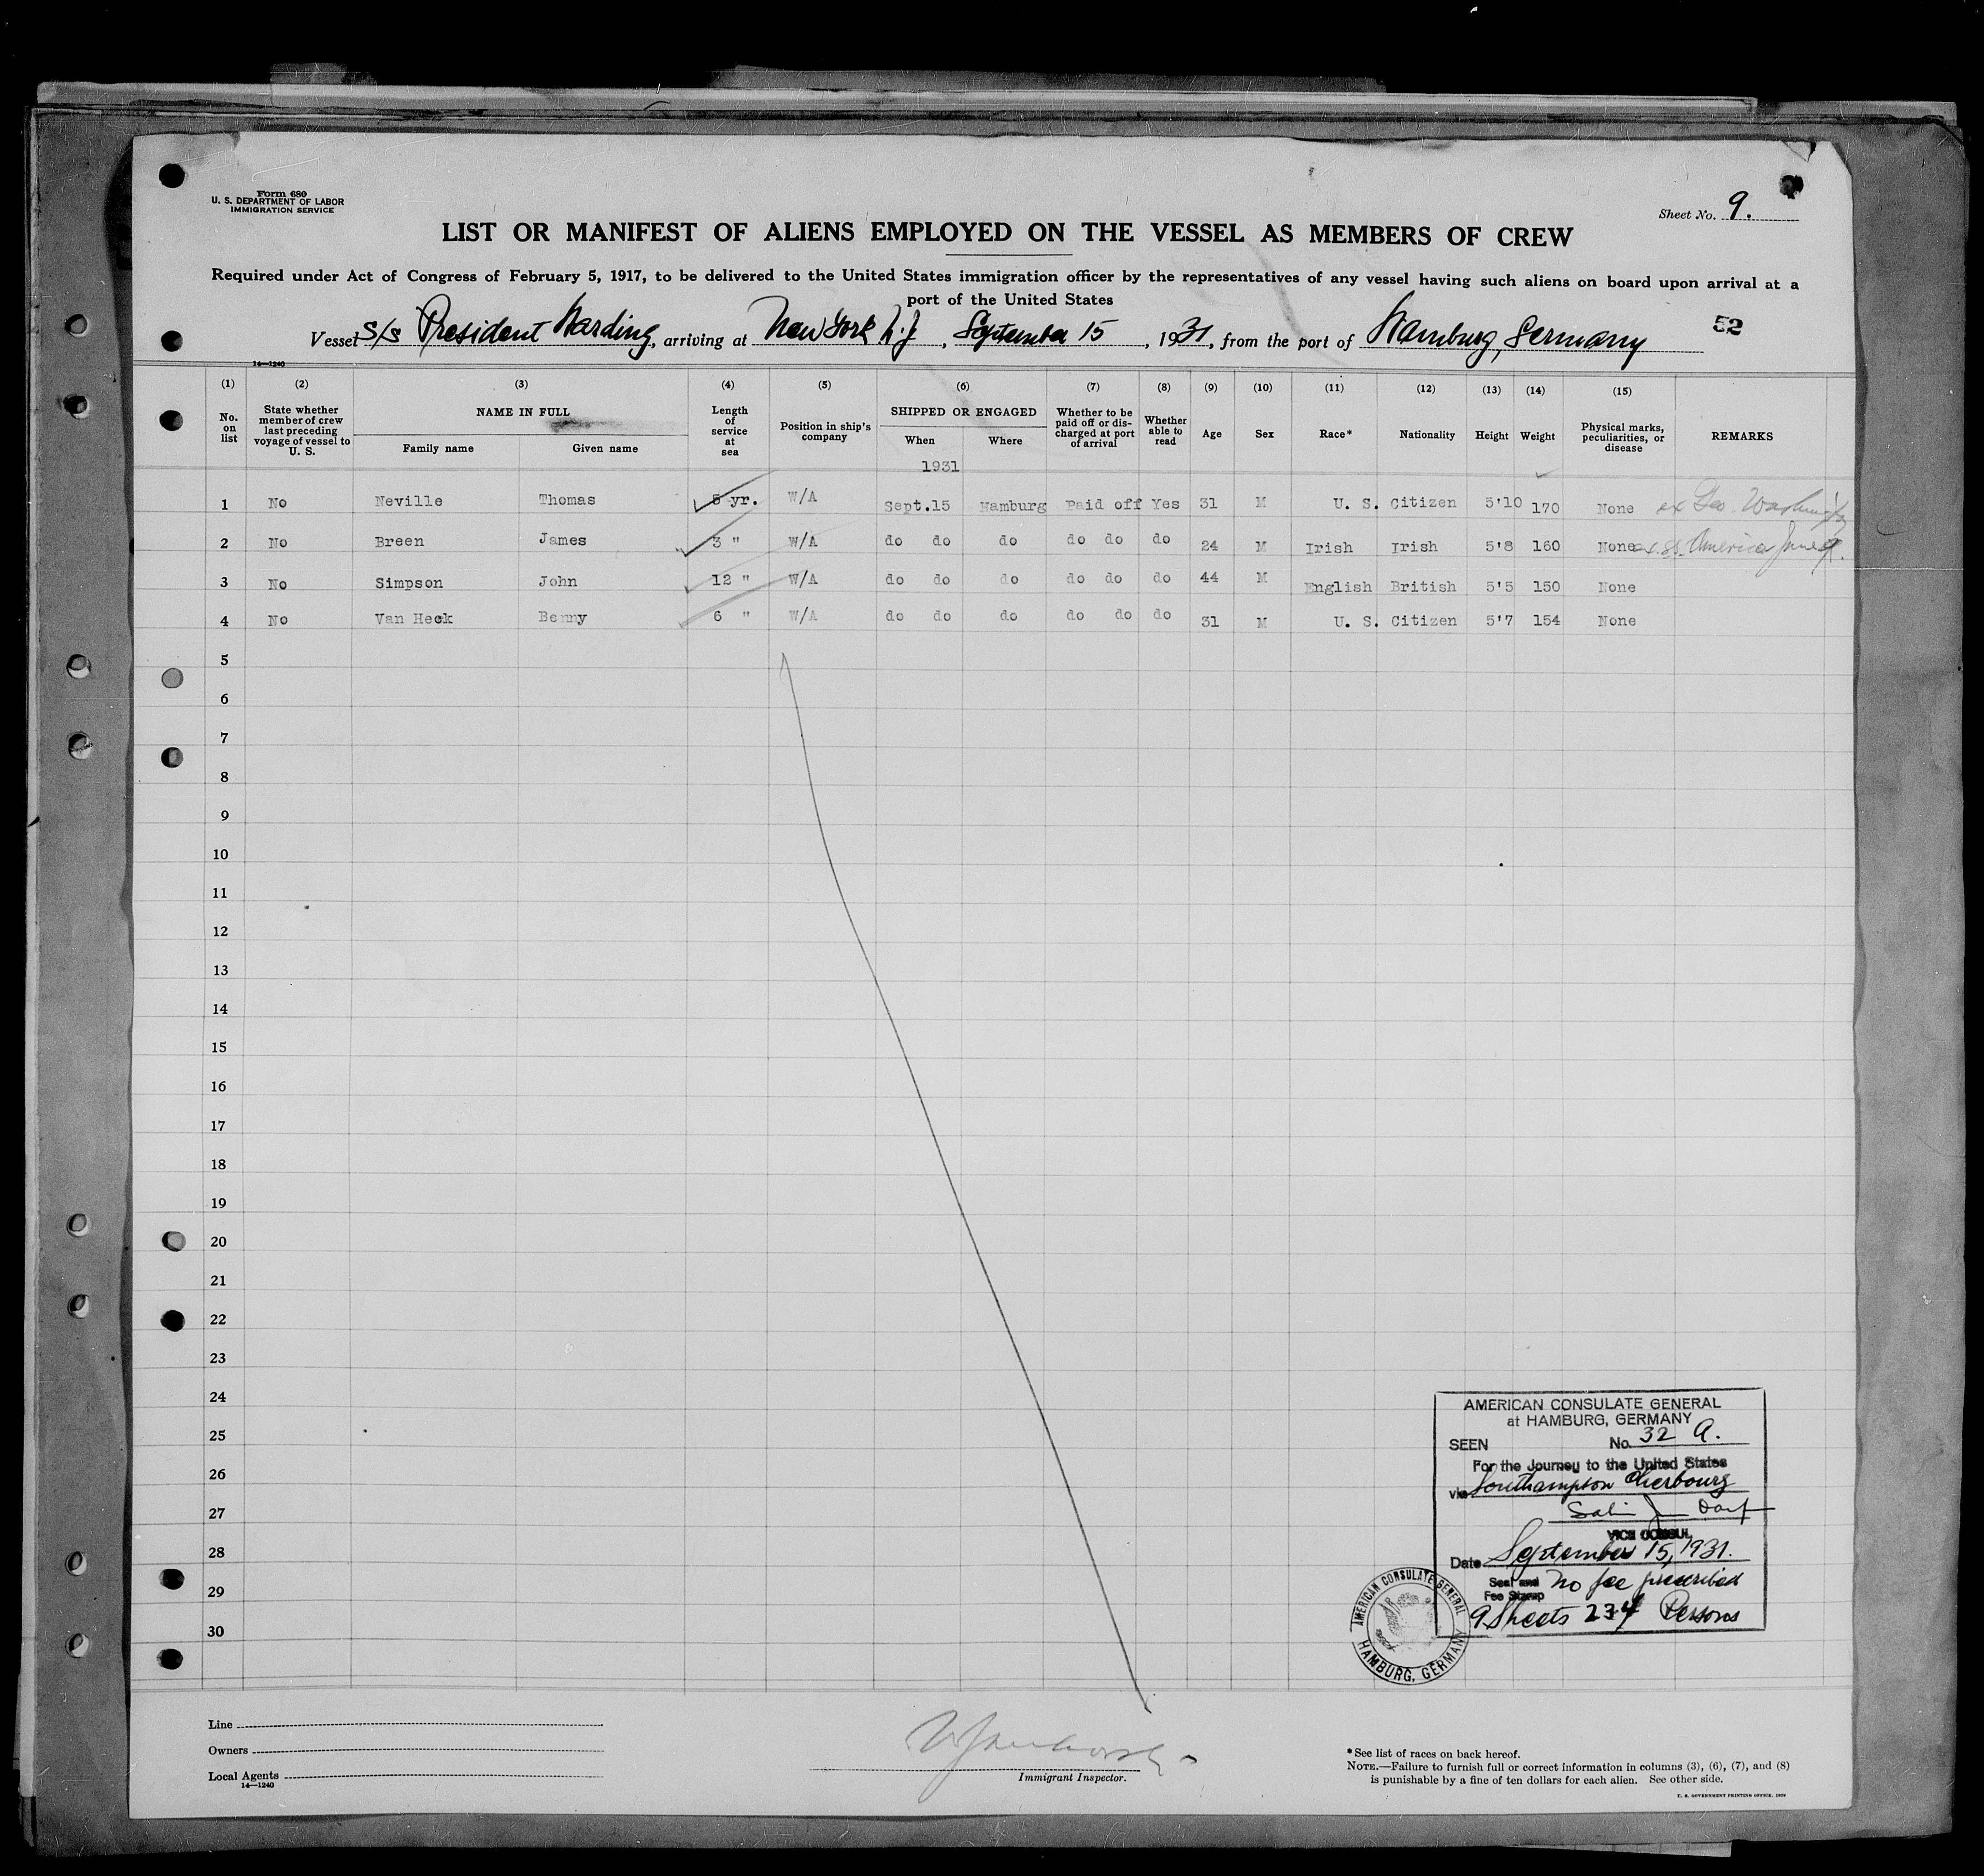 Form 680
U. S. DEPARTMENT OF LABOR
IMMIGRATION SERVICE
Sheet No. 9.
LIST OR MANIFEST OF ALIENS EMPLOYED ON THE VESSEL AS MEMBERS OF CREW
Required under Act of Congress of February 5, 1917, to be delivered to the United States immigration officer by the representatives of any vessel having such aliens on board upon arrival at a
port of the United States
Vessel S/s President Harding, arriving at New York, September 15, 1931, from the port of Hamburg, Germany
52
14—1240
(1) (2) (3) (4) (5) (6) (7) (8) (9) (10) (11) (12) (13) (14) (15)
No. on list
State whether member of crew last preceding voyage of vessel to U. S.
NAME IN FULL
Family name
Given name
Length of service at sea
Position in ship's company
SHIPPED OR ENGAGED
When
Where
Whether to be paid off or discharged at port of arrival
Whether able to read
Age
Sex
Race*
Nationality
Height
Weight
Physical marks, peculiarities, or disease
REMARKS
1931
1 No Neville Thomas 5 yr. W/A Sept.15 Hamburg Paid off Yes 31 M U. S. Citizen 5'10 170 None ex Geo. Washington
2 No Breen James 3 " W/A do do do do do do 24 M Irish Irish 5'8 160 None ex. SS. America June
3 No Simpson John 12 " W/A do do do do do do 44 M English British 5'5 150 None
4 No Van Heck Benny 6 " W/A do do do do do do 31 M U. S. Citizen 5'7 154 None
5
6
7
8
9
10
11
12
13
14
15
16
17
18
19
20
21
22
23
24
25
26
27
28
29
30
AMERICAN CONSULATE GENERAL
at HAMBURG, GERMANY
SEEN No. 32 A.
For the Journey to the United States
via Southampton Cherbourg
VICE CONSUL
Date September 15, 1931.
Seal and Fee Stamp No fee prescribed
9 Sheets 234 Persons
AMERICAN CONSULATE GENERAL
HAMBURG, GERMANY
Line
Owners
Local Agents
14—1240
Immigrant Inspector.
*See list of races on back hereof.
NOTE.—Failure to furnish full or correct information in columns (3), (6), (7), and (8)
is punishable by a fine of ten dollars for each alien. See other side.
U. S. GOVERNMENT PRINTING OFFICE. 1929